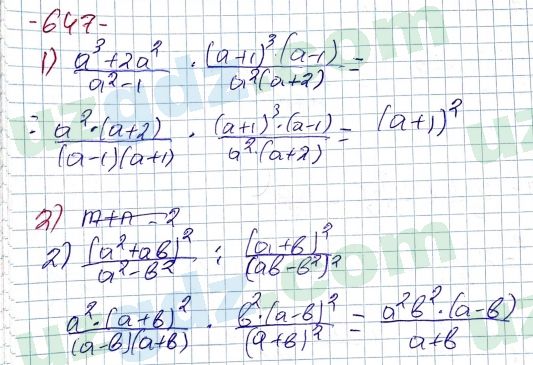 -647-
1) (a³+2a²)/(a²-1) · ((a+1)³·(a-1))/(a²(a+2)) =
= (a²·(a+2))/((a-1)(a+1)) · ((a+1)³·(a-1))/(a²·(a+2)) = (a+1)²
2) m+n-2
2) (a²+ab)²/(a²-b²) : (a+b)²/(ab-b²)²
(a²·(a+b)²)/((a-b)(a+b)) · (b²·(a-b)²)/(a+b)² = (a²b²·(a-b))/(a+b)